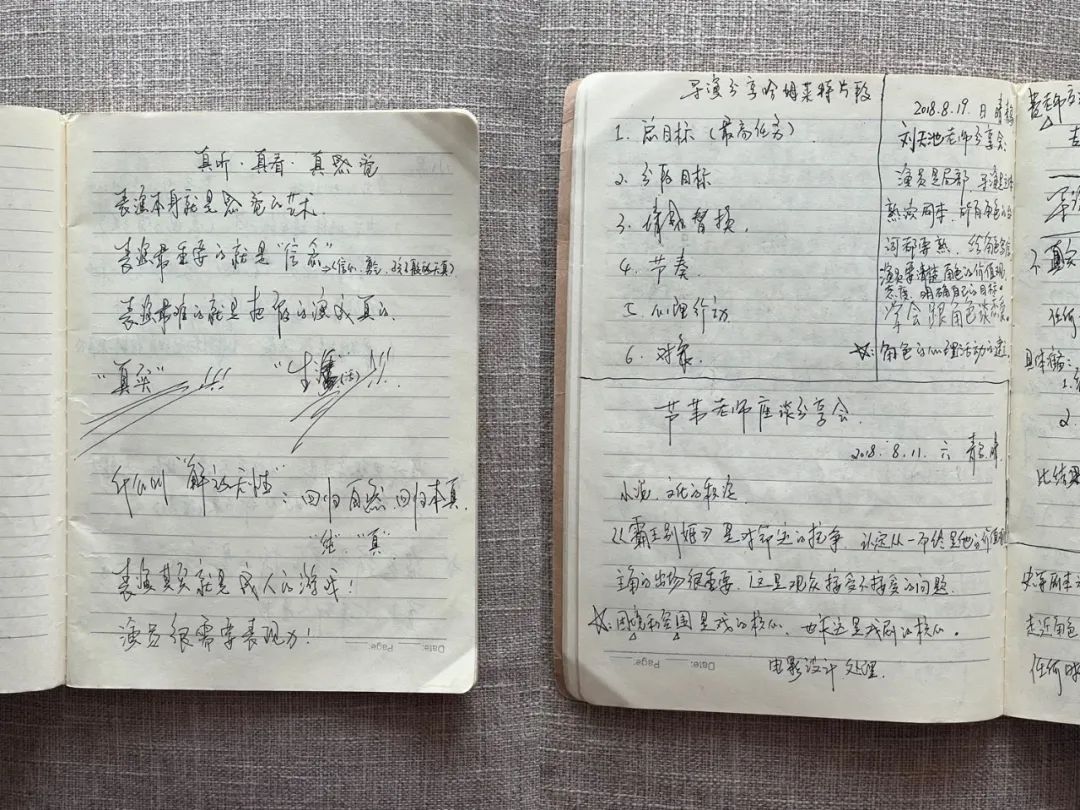 真听·真看·真感觉
表演本身就是感觉的艺术.
表演最重要的就是"信念"
表演最难的就是把假的演成真的.
"真实"!!! "生活"(活)!!!
什么叫"解放天性": 回归自然、回归本真.
"纯". "真"
表演其实就是成人的游戏!
演员很需要表现力!
Date: Page:
导演分享哈姆莱特片段
1. 总目标（最高任务）
2. 分段目标
3. 情感替换.
4. 节奏.
5. 心理行动
6. 对象.
2018.8.19. 日 晴
刘天池老师分享会:
演员是局部 导演是
熟读剧本,所有角色的台
词都要熟.给角色写
演员要清楚角色的价值观
态度,明确自己的目标。
学会跟角色谈恋爱。
☆: 角色的心理活动的建
芦苇老师座谈分享会.
2018. 8. 11. 六 晴
小说、文化的积淀
《霸王别姬》是对命运的抗争、认定从一而终是他的价值
主角的出场很重要.这是观众接受不接受的问题.
☆: 因境和突围是戏的核心、也是戏剧的核心。
电影设计处理.
Date: Page:
任何
具体
1.
2.
走近角色
任何